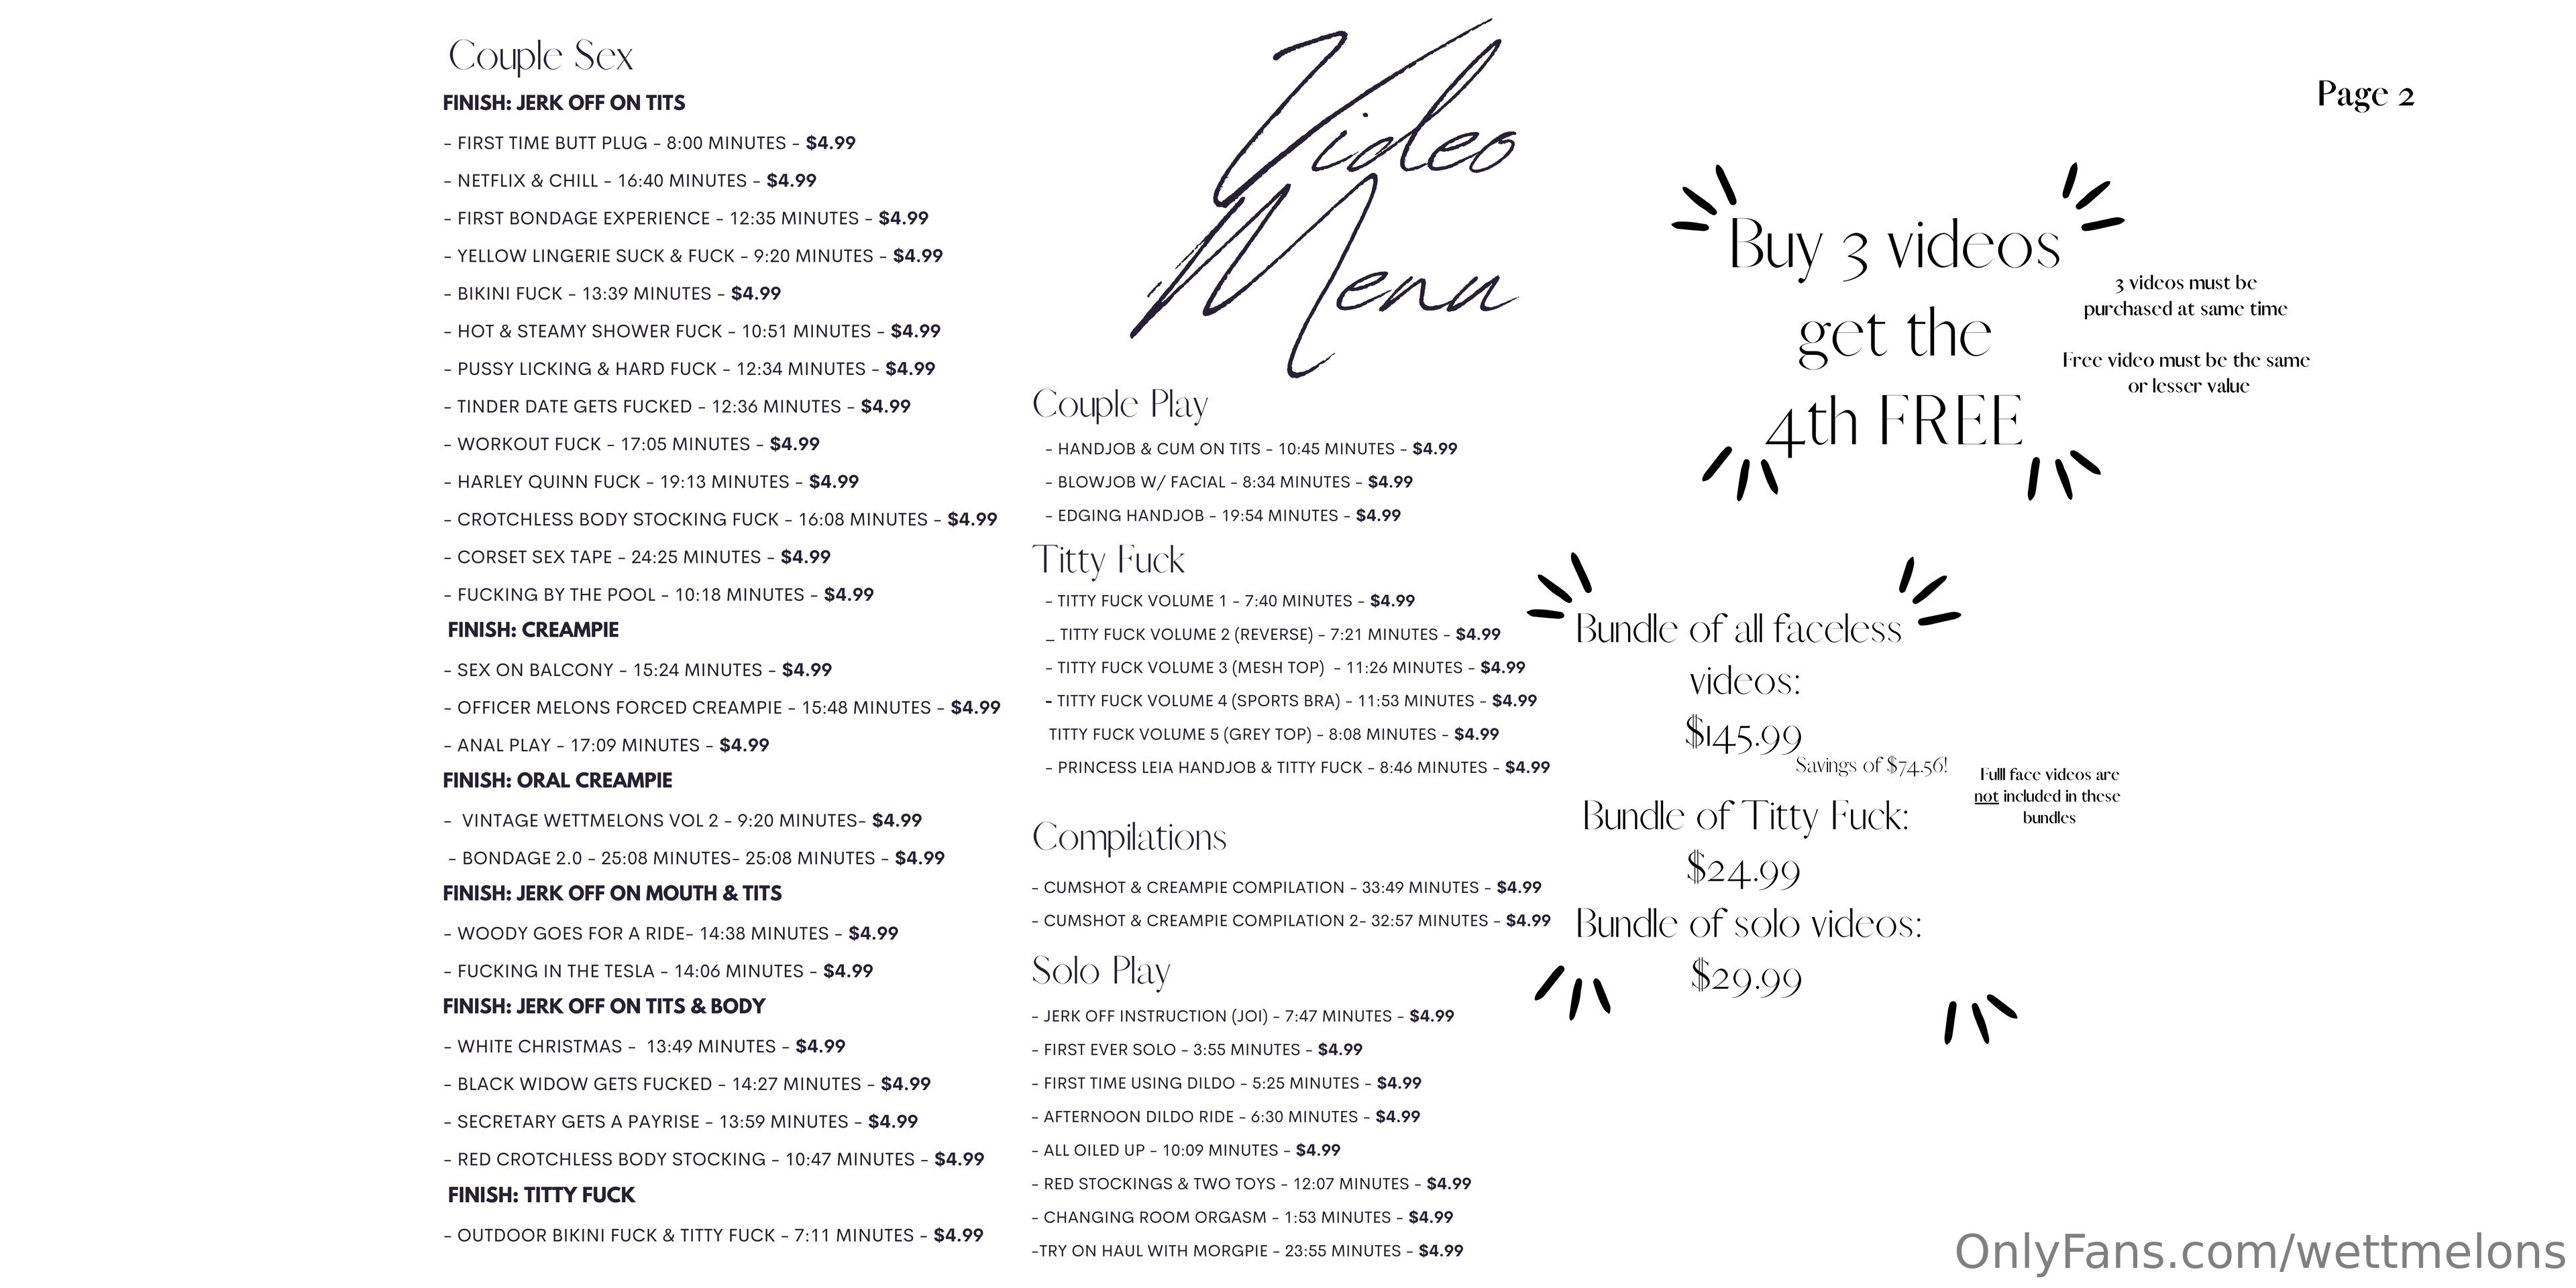 Couple Sex
FINISH: JERK OFF ON TITS
- FIRST TIME BUTT PLUG - 8:00 MINUTES - $4.99
- NETFLIX & CHILL - 16:40 MINUTES - $4.99
- FIRST BONDAGE EXPERIENCE - 12:35 MINUTES - $4.99
- YELLOW LINGERIE SUCK & FUCK - 9:20 MINUTES - $4.99
- BIKINI FUCK - 13:39 MINUTES - $4.99
- HOT & STEAMY SHOWER FUCK - 10:51 MINUTES - $4.99
- PUSSY LICKING & HARD FUCK - 12:34 MINUTES - $4.99
- TINDER DATE GETS FUCKED - 12:36 MINUTES - $4.99
- WORKOUT FUCK - 17:05 MINUTES - $4.99
- HARLEY QUINN FUCK - 19:13 MINUTES - $4.99
- CROTCHLESS BODY STOCKING FUCK - 16:08 MINUTES - $4.99
- CORSET SEX TAPE - 24:25 MINUTES - $4.99
- FUCKING BY THE POOL - 10:18 MINUTES - $4.99
FINISH: CREAMPIE
- SEX ON BALCONY - 15:24 MINUTES - $4.99
- OFFICER MELONS FORCED CREAMPIE - 15:48 MINUTES - $4.99
- ANAL PLAY - 17:09 MINUTES - $4.99
FINISH: ORAL CREAMPIE
- VINTAGE WETTMELONS VOL 2 - 9:20 MINUTES- $4.99
- BONDAGE 2.0 - 25:08 MINUTES- 25:08 MINUTES - $4.99
FINISH: JERK OFF ON MOUTH & TITS
- WOODY GOES FOR A RIDE- 14:38 MINUTES - $4.99
- FUCKING IN THE TESLA - 14:06 MINUTES - $4.99
FINISH: JERK OFF ON TITS & BODY
- WHITE CHRISTMAS - 13:49 MINUTES - $4.99
- BLACK WIDOW GETS FUCKED - 14:27 MINUTES - $4.99
- SECRETARY GETS A PAYRISE - 13:59 MINUTES - $4.99
- RED CROTCHLESS BODY STOCKING - 10:47 MINUTES - $4.99
FINISH: TITTY FUCK
- OUTDOOR BIKINI FUCK & TITTY FUCK - 7:11 MINUTES - $4.99
Video
Menu
Couple Play
- HANDJOB & CUM ON TITS - 10:45 MINUTES - $4.99
- BLOWJOB W/ FACIAL - 8:34 MINUTES - $4.99
- EDGING HANDJOB - 19:54 MINUTES - $4.99
Titty Fuck
- TITTY FUCK VOLUME 1 - 7:40 MINUTES - $4.99
_ TITTY FUCK VOLUME 2 (REVERSE) - 7:21 MINUTES - $4.99
- TITTY FUCK VOLUME 3 (MESH TOP) - 11:26 MINUTES - $4.99
- TITTY FUCK VOLUME 4 (SPORTS BRA) - 11:53 MINUTES - $4.99
TITTY FUCK VOLUME 5 (GREY TOP) - 8:08 MINUTES - $4.99
- PRINCESS LEIA HANDJOB & TITTY FUCK - 8:46 MINUTES - $4.99
Compilations
- CUMSHOT & CREAMPIE COMPILATION - 33:49 MINUTES - $4.99
- CUMSHOT & CREAMPIE COMPILATION 2- 32:57 MINUTES - $4.99
Solo Play
- JERK OFF INSTRUCTION (JOI) - 7:47 MINUTES - $4.99
- FIRST EVER SOLO - 3:55 MINUTES - $4.99
- FIRST TIME USING DILDO - 5:25 MINUTES - $4.99
- AFTERNOON DILDO RIDE - 6:30 MINUTES - $4.99
- ALL OILED UP - 10:09 MINUTES - $4.99
- RED STOCKINGS & TWO TOYS - 12:07 MINUTES - $4.99
- CHANGING ROOM ORGASM - 1:53 MINUTES - $4.99
-TRY ON HAUL WITH MORGPIE - 23:55 MINUTES - $4.99
Page 2
Buy 3 videos
get the
4th FREE
3 videos must be
purchased at same time
Free video must be the same
or lesser value
Bundle of all faceless
videos:
$145.99
Savings of $74.56!
Bundle of Titty Fuck:
$24.99
Bundle of solo videos:
$29.99
Fulll face videos are
not included in these
bundles
OnlyFans.com/wettmelons